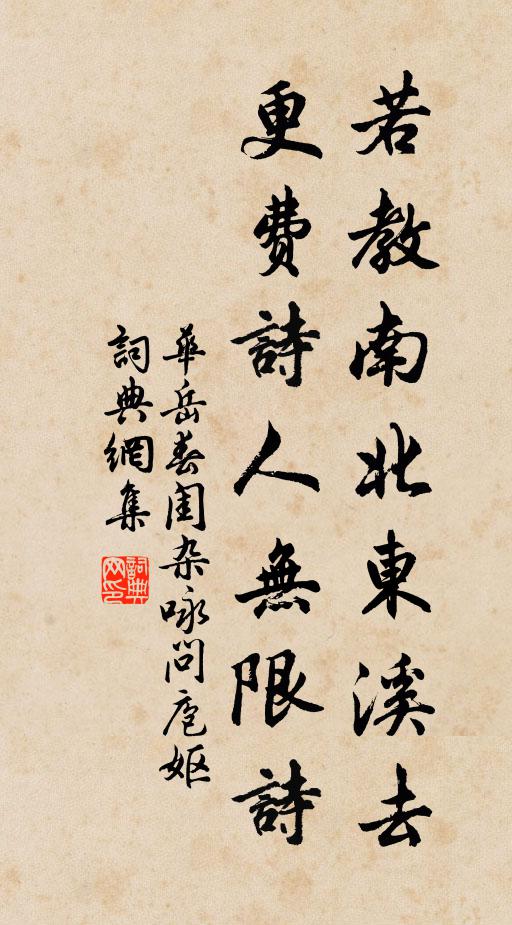 若教南北東溪去
更費詩人無限詩
華岳春閨杂咏問庖妪
詞典網集
詞典网印